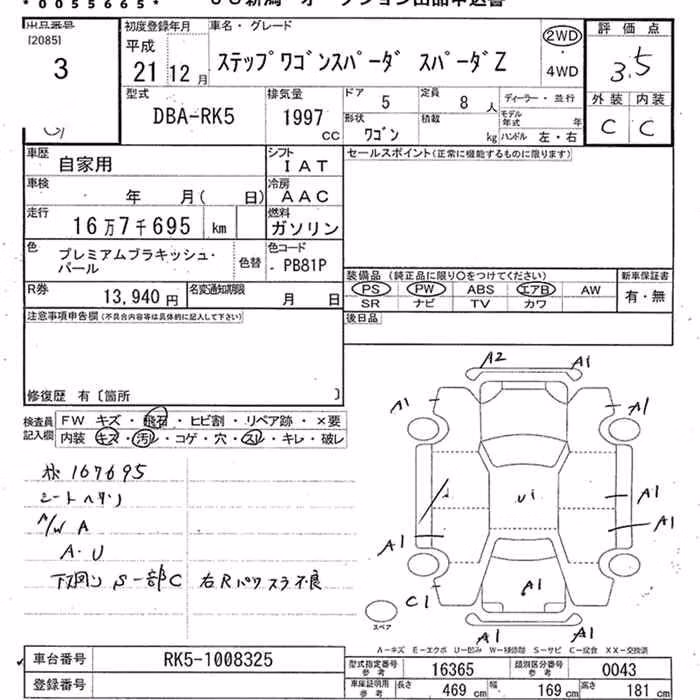 *0055665*
[2085]
3
初度登録年月
平成
21 12月
車名・グレード
ステップワゴンスパーダ スパーダZ
2WD
・
4WD
評価点
3.5
型式
DBA-RK5
排気量
1997
cc
ドア
5
定員
8 人
ディーラー・並行
形状
ワゴン
積載
kg
モデル年式 年
ハンドル 左・右
外装 内装
C C
車歴
自家用
シフト
IAT
セールスポイント(正常に機能するものに限ります)
車検
年 月( 日)
冷房
AAC
走行
16万7千695 km
燃料
ガソリン
色
プレミアムブラキッシュ・
パール
色替
色コード
- PB81P
装備品 (純正品に限り○をつけてください)
新車保証書
PS PW ABS エアB AW
有・無
SR ナビ TV カワ
R券
13,940 円
名変通知期限
月 日
後日品
注意事項申告欄(不具合内容等は具体的に記入して下さい)
修復歴 有〔箇所 〕
検査員
記入欄
FW キズ・飛石・ヒビ割・リペア跡・×要
内装 キズ・汚レ・コゲ・穴・スレ・キレ・破レ
167695
シートヘタリ
A/W A
A・U
下回り S一部C 右Rパワスラ不良
A2
A1
A1
A1
A1
U1
A1
A1
A1
C1
A1
A1
スペア
A-キズ E-エクボ U-凹み W-補修跡 S-サビ C-腐食 XX-交換済
車台番号
RK5-1008325
型式指定番号
参考
16365
類別区分番号
参考
0043
登録番号
車庫証明用
参考
長さ 469 cm
幅 169 cm
高さ 181 cm